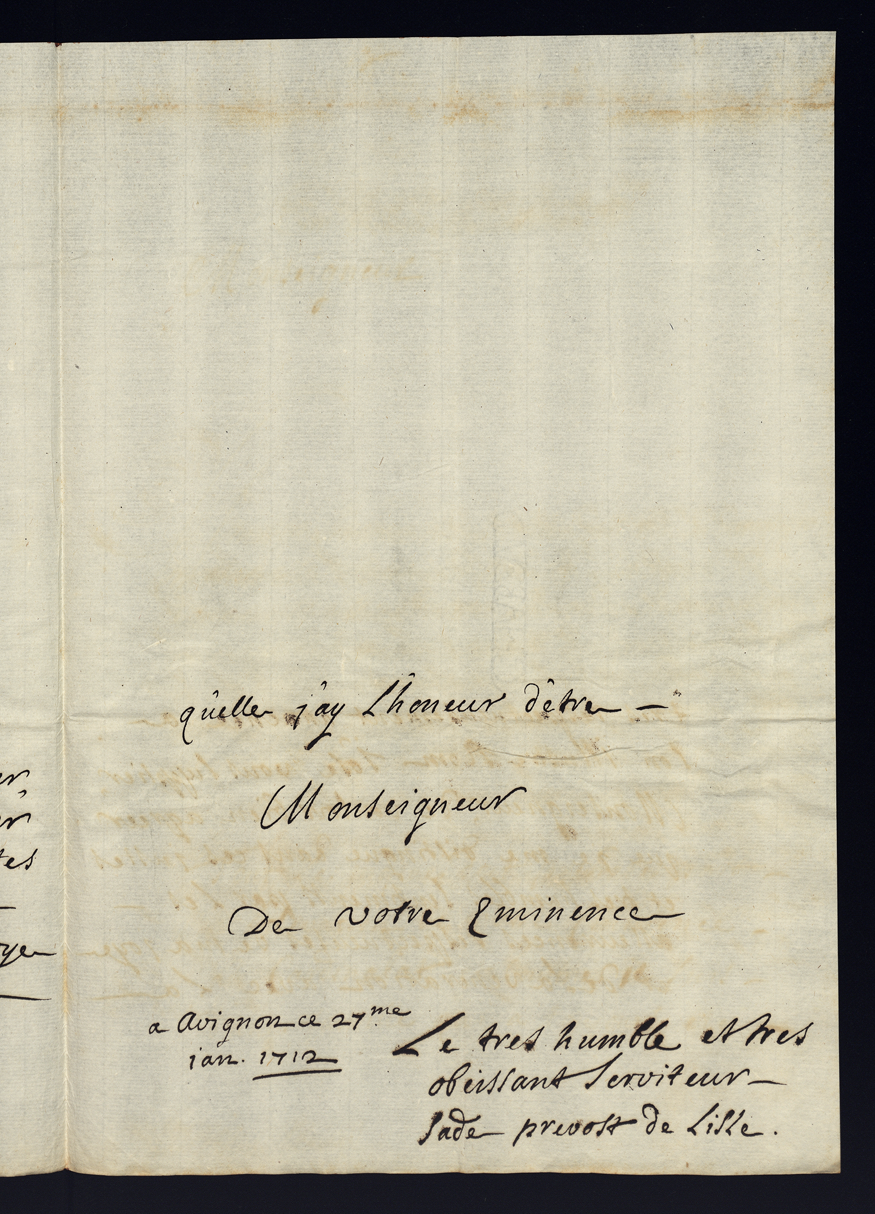 quelle j'ay L'honeur d'être —
Monseigneur
De votre Eminence
a Avignon ce 27.me
jan. 1712
Le tres humble et tres
obeissant serviteur —
Sade prevost de Lisle.